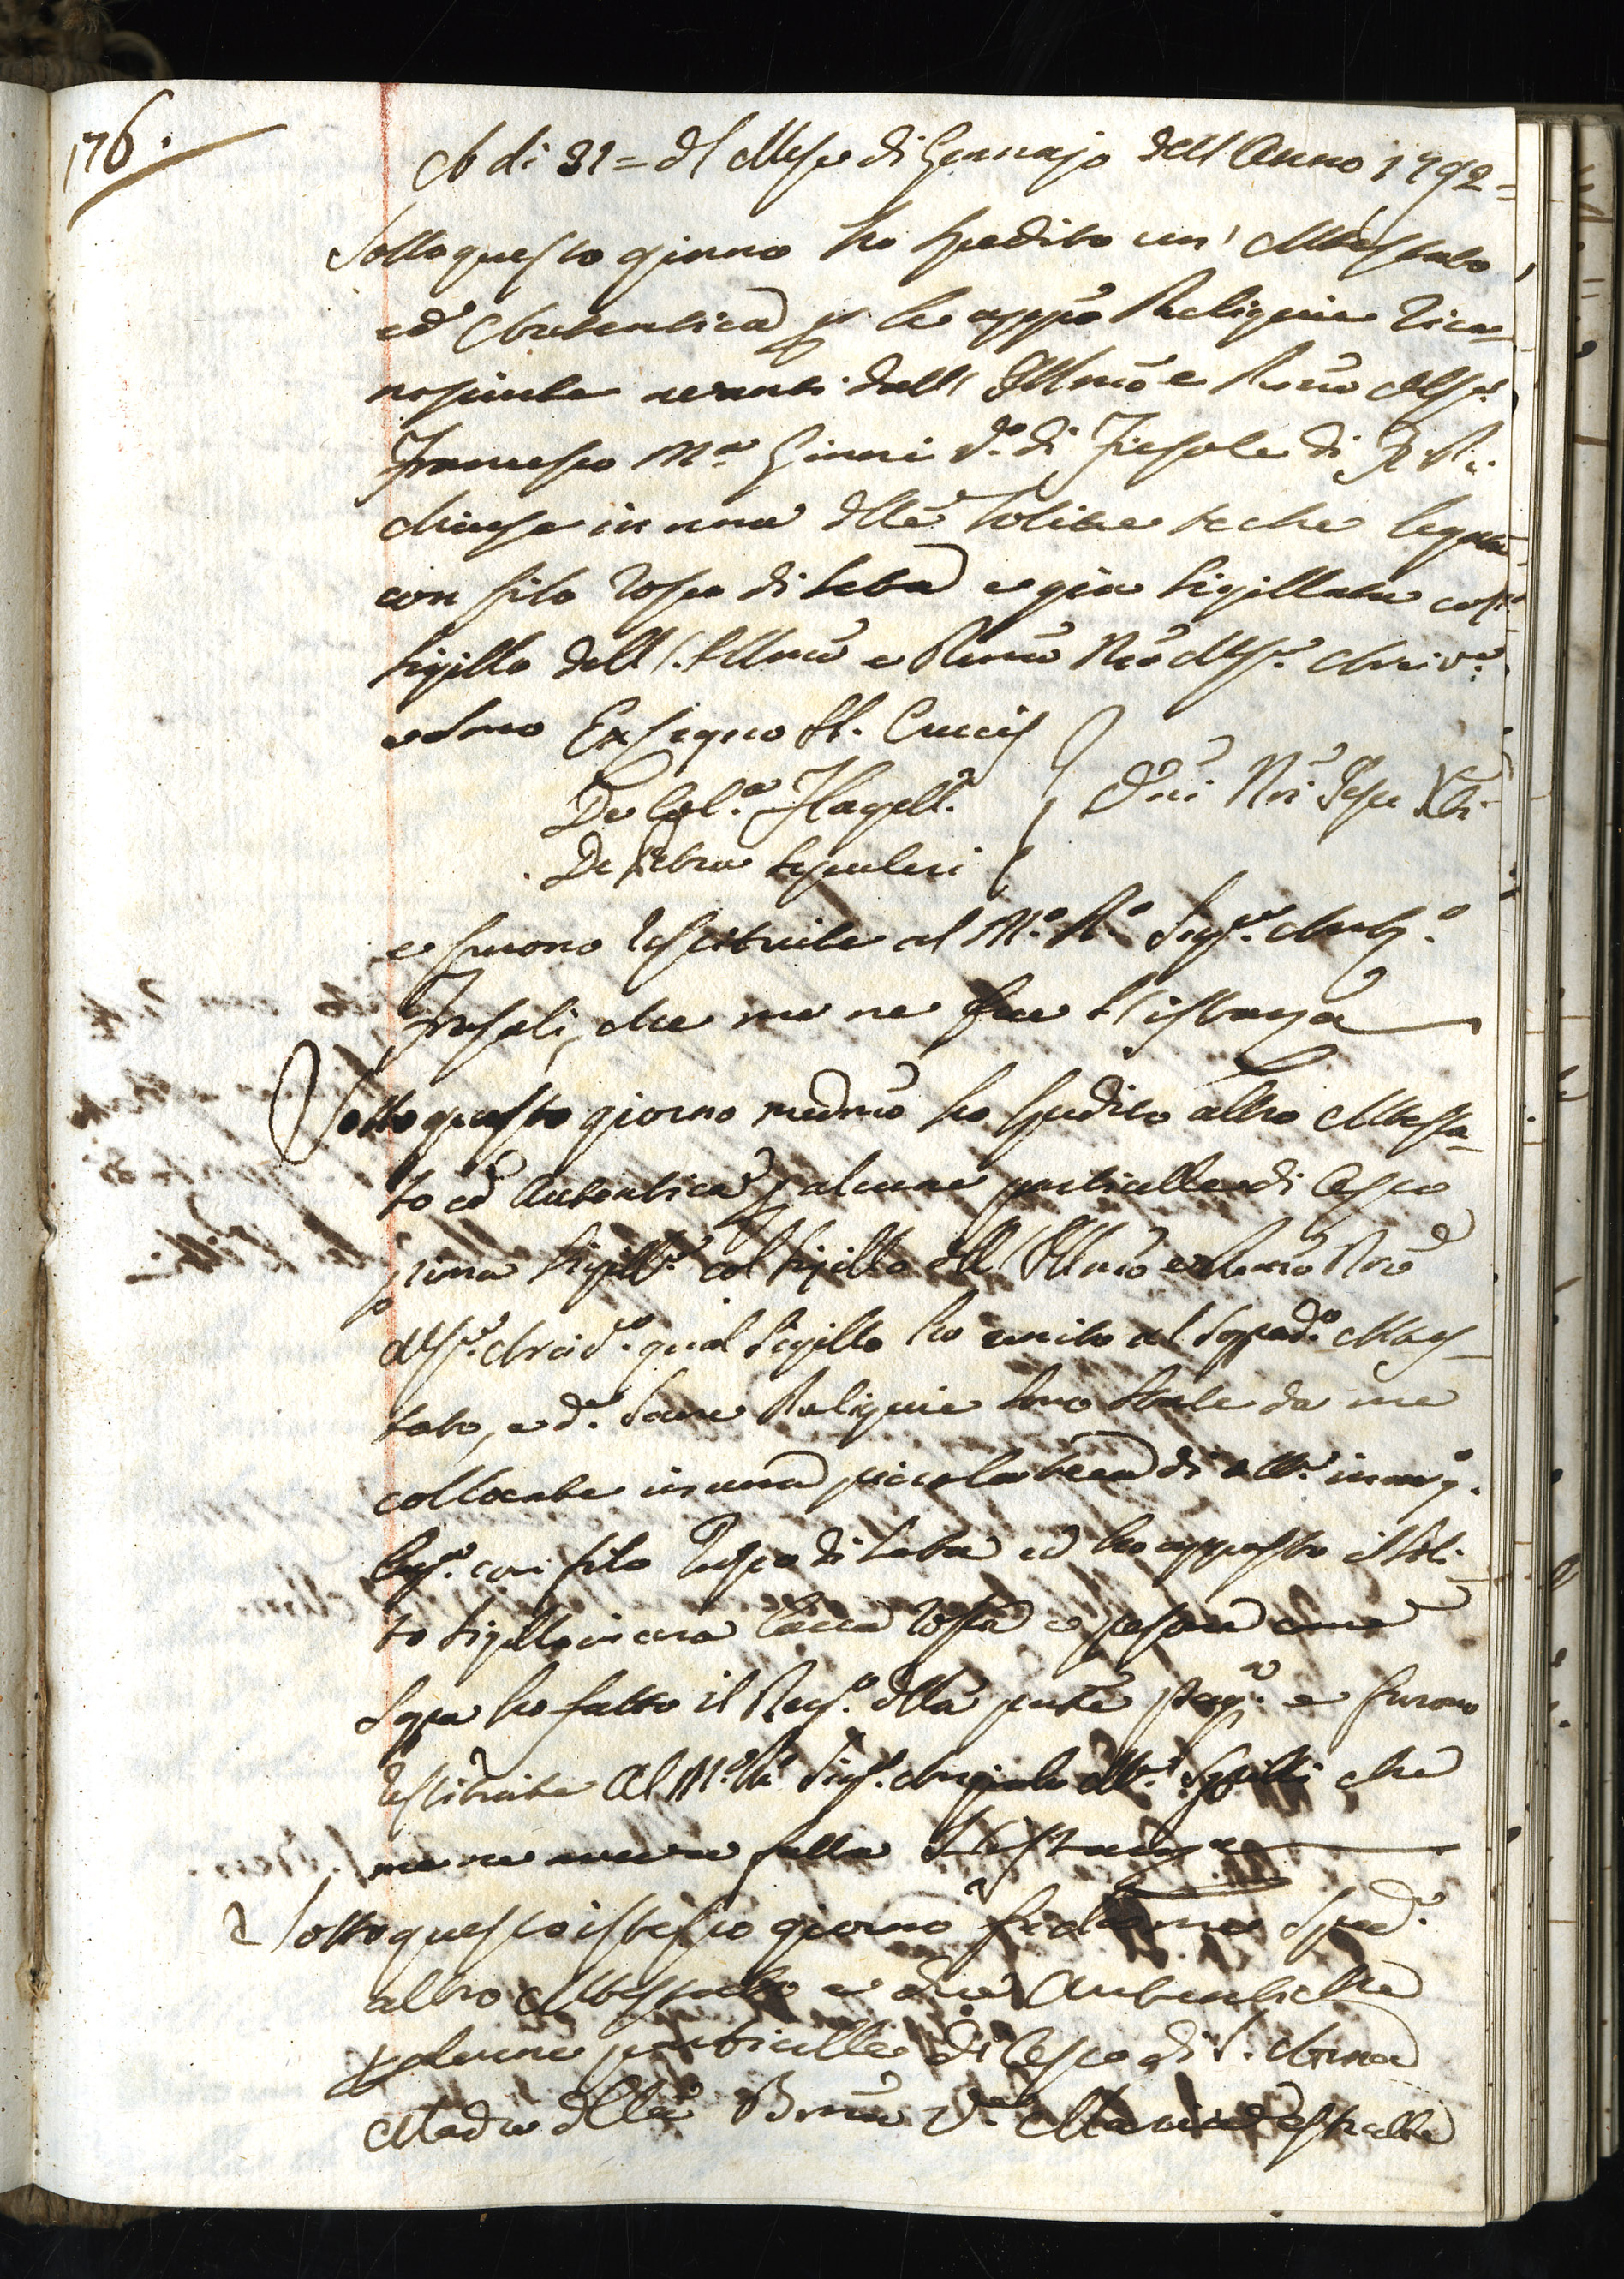 176.
A di 31 = dl Mese di Gennajo dell'Anno 1792 =
Sotto questo giorno ho spedito un' Attestato,
ed Autentica p le appõ Reliquie rico-
nosciute avanti dall' Illmõ e Rmõ Msr.
Francesco Ma. Ginori Vo. di Fiesole di
chiuse in una dllẽ solite teche legata
con filo rosso di seta e già sigillata col
sigillo dell' Illmõ e Rmõ Nrõ Msr. Arciv.e
e sono Ex Ligno SS. Crucis
De Col.a Flagell.s } Dñi Nri Jesu Xti
De Petra sepulcri
e furono restituite al M.o R.o Sigr. Amb.o
Frosali, che me ne fece l'istanza
Sotto questo giorno medmõ ho spedito altro Attesta-
to ed Autentica p alcune particelle di Osso
prima sigill.e col sigillo dll' Illmõ e Rmõ Nrõ
Msr. Arciv.o qual sigillo ho unito al soppad.o Attes-
tato, e d.e Sacre Reliquie sono state da me
collocate in una piccola teca di
leg.a con filo rosso di seta ed ho apposto il soli-
to sigillo in cera lacca rossa e come
sopa ho fatto il Reg.o dlla pñte pag.a e furono
restituite al M.o R.o Sigr. Angiolo che
me ne aveva fatta l'istanza
Sotto questo istesso giorno da me sped.o
altro Attestato e due Autentiche
p alcune particelle di Osso di S. Anna
Madre dlla Bmã V.e Maria estratte